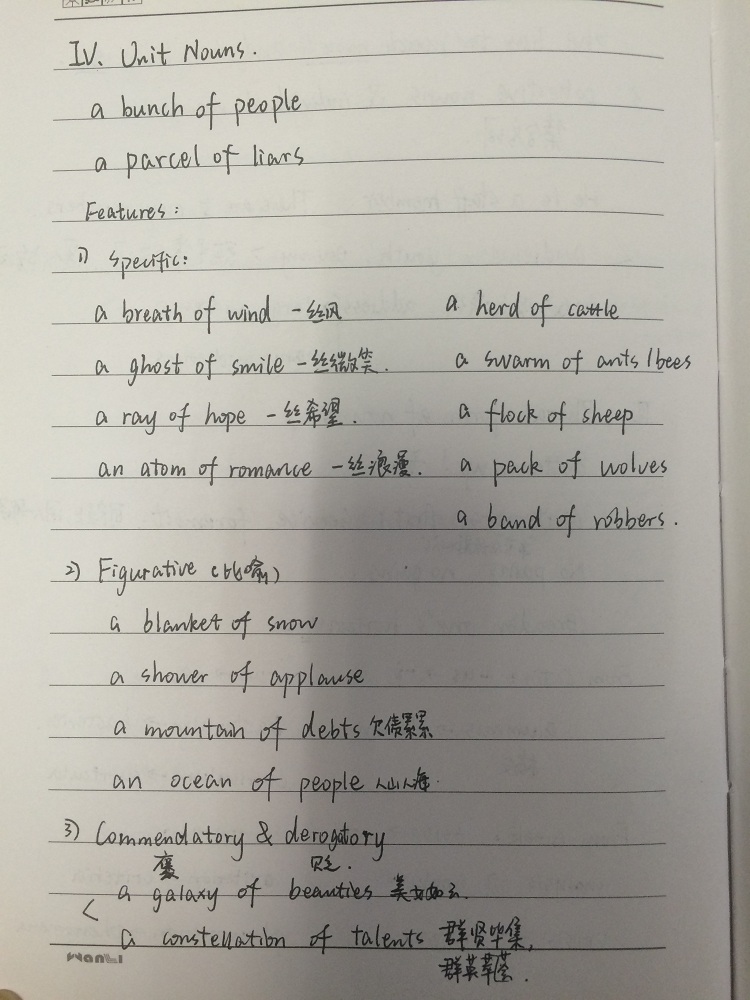 IV. Unit Nouns.
a bunch of people
a parcel of liars
Features:
1) Specific:
a breath of wind 一丝风 a herd of cattle
a ghost of smile 一丝微笑. a swarm of ants/bees
a ray of hope 一丝希望. a flock of sheep
an atom of romance 一丝浪漫. a pack of wolves
a band of robbers.
2) Figurative (比喻)
a blanket of snow
a shower of applause
a mountain of debts 欠债累累
an ocean of people 人山人海.
3) Commendatory & derogatory
褒 贬.
a galaxy of beauties 美女如云.
a constellation of talents 群贤毕集,
群英荟萃.